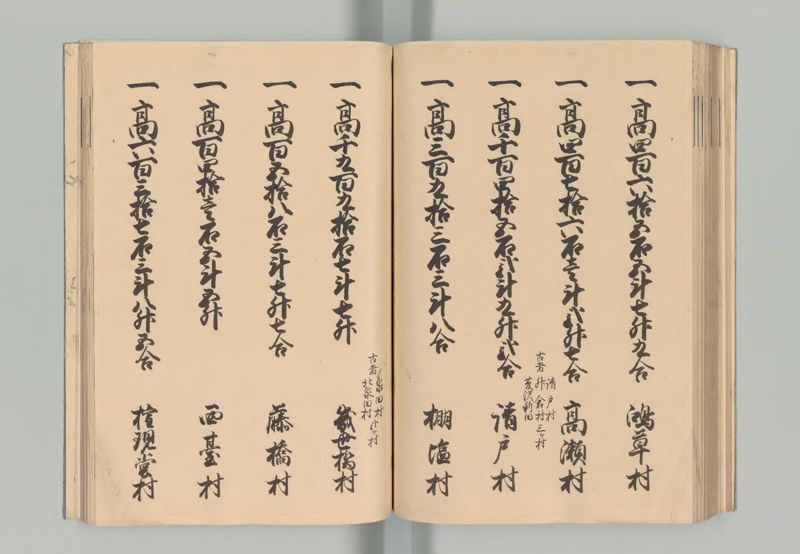 一高四百六拾五石五斗七升九合 鴻草村
一高四百七拾六石壱斗弐升七合 高瀬村
一高千百四拾五石弐斗九升弐合 清戸村
古者 清戸村 村 三ヶ村
新田
一高三百九拾三石三斗八合 棚塩村
一高千九百九拾石七斗七升 幾世橋村
古者 泉田村
北泉田村
一高百五拾八石三斗七升七合 藤橋村
一高百四拾壱石五斗五升 西臺村
一高六百三拾七石三斗八升五合 権現堂村